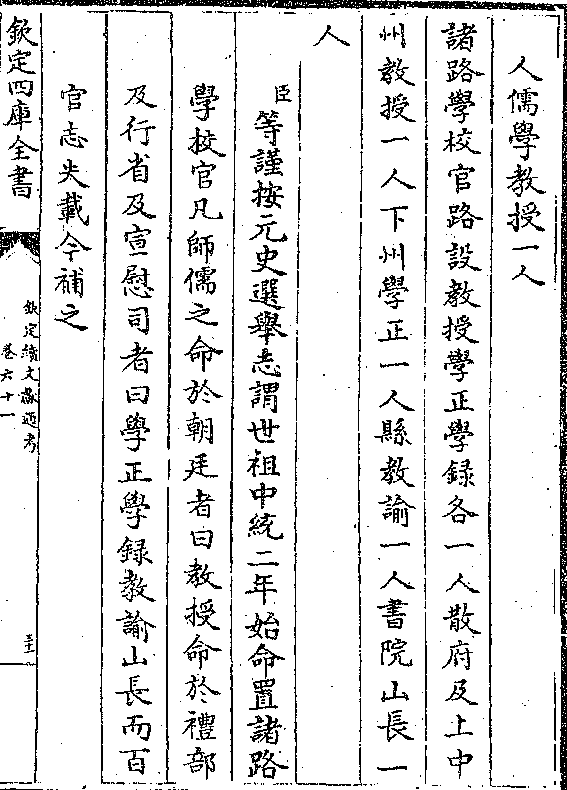 人儒學教授一人
諸路學校官路設教授學正學録各一人散府及上中
州教授一人下州學正一人縣教諭一人書院山長一
人
臣等謹按元史選舉志謂世祖中統二年始命置諸路
學校官凡師儒之命於朝廷者曰教授命於禮部
及行省及宣慰司者曰學正學録教諭山長而百
官志失載今補之
欽定四庫全書
欽定續文獻通考
卷六十一